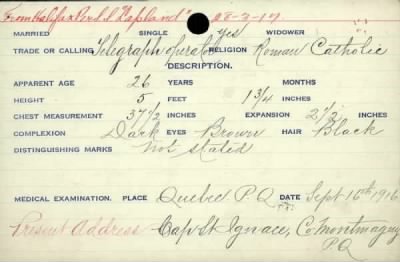 From Halifax Per S.S. "Lapland" 28-3-17.
MARRIED SINGLE yes WIDOWER
TRADE OR CALLING Telegraph Operator RELIGION Roman Catholic
DESCRIPTION.
APPARENT AGE 26 YEARS MONTHS
HEIGHT 5 FEET 1 3/4 INCHES
CHEST MEASUREMENT 37 1/2 INCHES EXPANSION 2 1/2 INCHES
COMPLEXION Dark EYES Brown HAIR Black
DISTINGUISHING MARKS not stated
MEDICAL EXAMINATION. PLACE Quebec P.Q. DATE Sept 15th 1916
Present Address Cap St Ignace, Co. Montmagny
P.Q